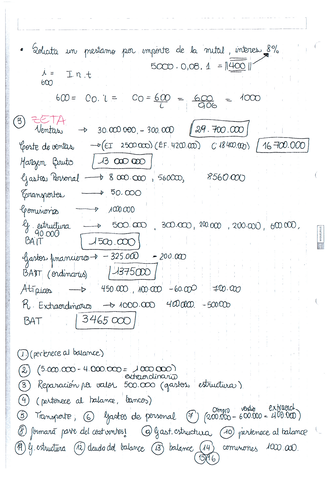 • Solicita un prestamo por importe de la mitad, interes 8%
5000 · 0,08 · 1 = 400
I = I n . t
600
600 = Co . i = Co = 600/i = 600/0,06 = 1000
⑤ ZETA
Ventas → 30.000.000, - 300.000 29.700.000
Coste de ventas → (EI 2500.000) (EF. 4200.000) C 18400.000) 16 700.000
Margen Bruto 13 000 000
Gastos Personal → 8 000.000, 560000, 8560000
Transportes → 50.000
Comisiones → 1000000
G estructura → 500.000, 300.000, 200 000, 200.000, 600.000,
90 000
BAIT 1500.000
Gastos financieros → - 325.000 - 200.000
BAIT (ordinarios) 1375000
Atípicos → 450.000, 100 000 - 60.000 100.000
R. Extraordinarios → 1000.000 400000 - 500000
BAT 3465000
① (pertenece al balance)
② (5.000.000 - 4.000.000 = 1000000)
extraordinario
③ Reparación por valor 500.000 (gastos estructura)
④ (pertenece al balance, bancos)
⑤ Transporte, ⑥ Gastos de personal ⑦ (200.000 - 600.000 = 400.000)
⑧ formará parte del cost ventas ⑨ Gast. estructura ⑩ pertenece al balance
⑪ G. estructura ⑫ deuda del balance ⑬ balance ⑭ comisiones 1000.000